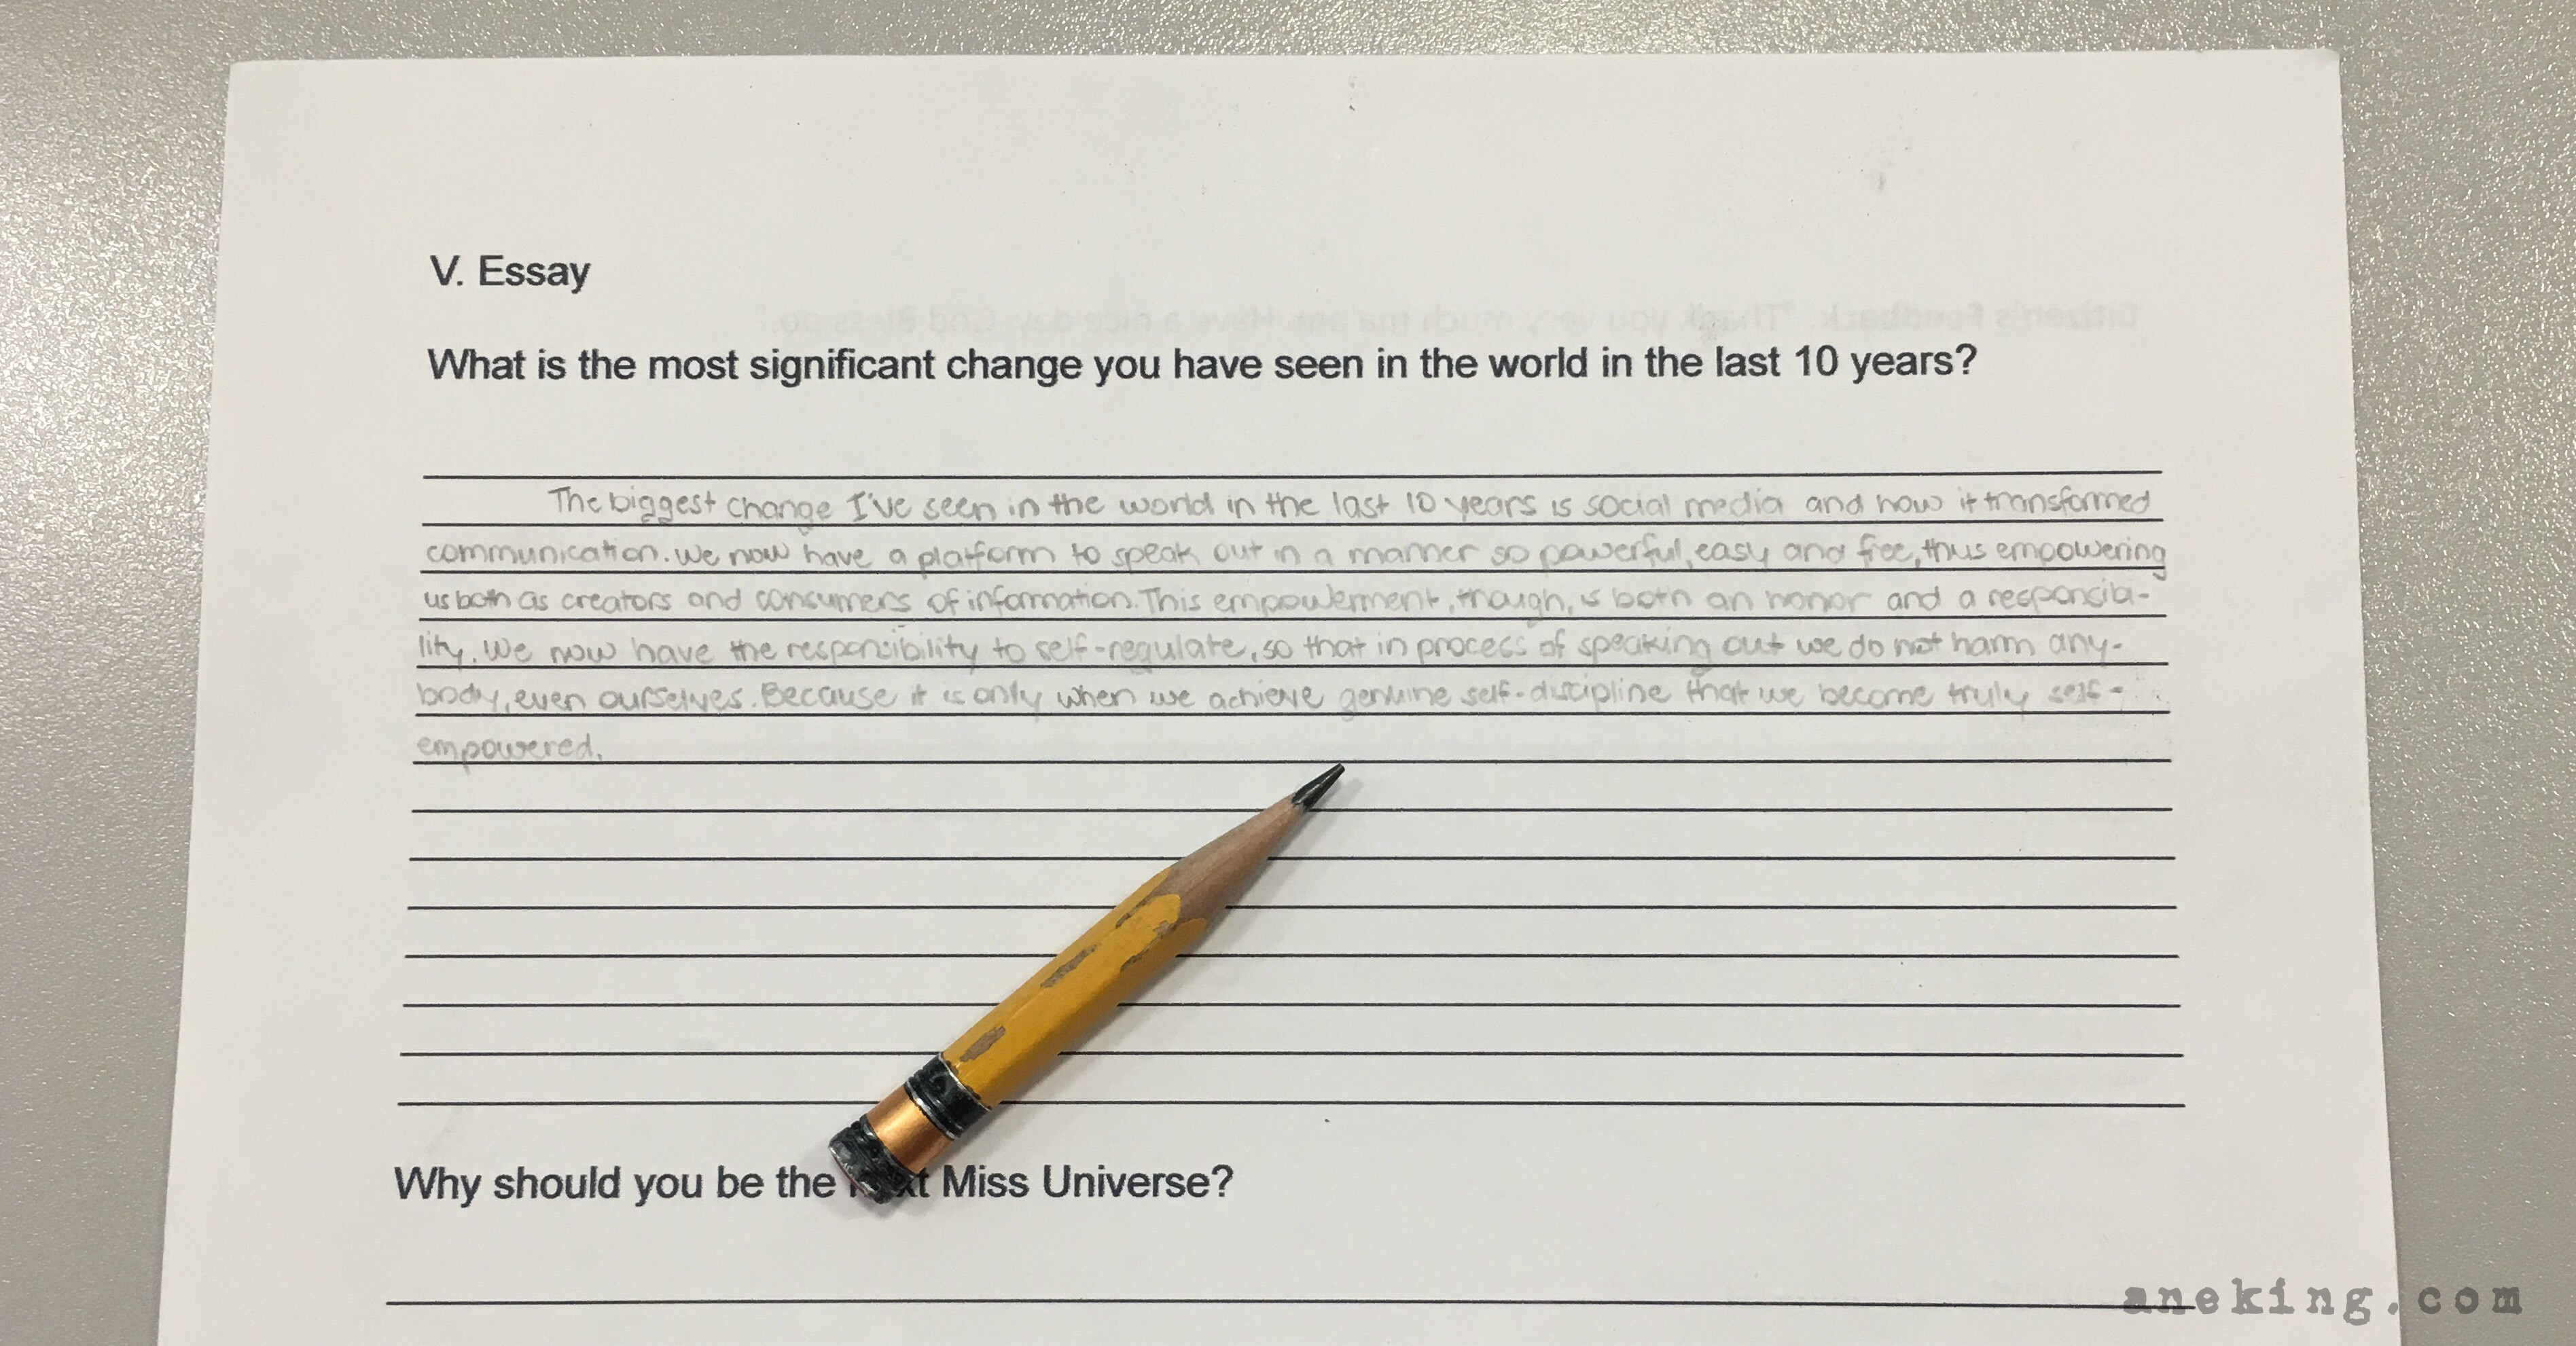 V. Essay
Citizen's Feedback: "Thank you very much ma'am. Have a nice day. God Bless po."
What is the most significant change you have seen in the world in the last 10 years?
The biggest change I've seen in the world in the last 10 years is social media and how it transformed
communication. We now have a platform to speak out in a manner so powerful, easy and free, thus empowering
us both as creators and consumers of information. This empowerment, though, is both an honor and a responsibi-
lity. We now have the responsibility to self-regulate, so that in process of speaking out we do not harm any-
body, even ourselves. Because it is only when we achieve genuine self-discipline that we become truly self-
empowered.
Why should you be the next Miss Universe?
aneking.com